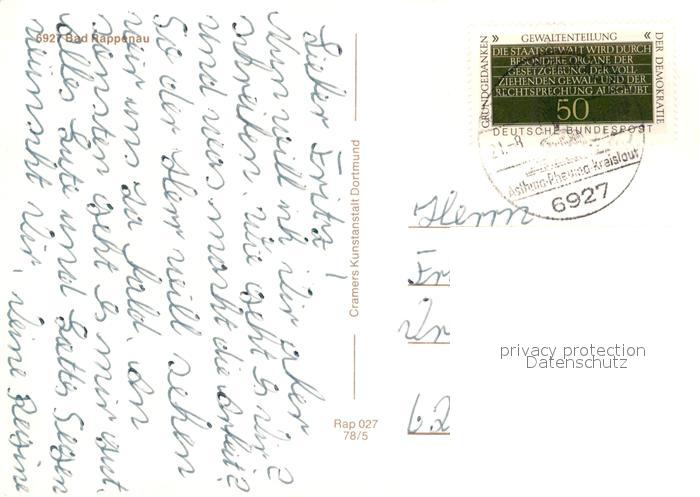 6927 Bad Rappenau
Lieber Fritz!
Nun will ich Dir aber
schreiben, wie geht es Dir?
und was macht die Arbeit?
So der Herr will sehen
wir uns ja bald. Am
geht es mir gut.
Alles Gute und Gottes Segen
wünscht Dir, Deine Regine
Cramers Kunstanstalt Dortmund
Rap 027
78/5
GRUNDGEDANKEN » GEWALTENTEILUNG « DER DEMOKRATIE
DIE STAATSGEWALT WIRD DURCH
BESONDERE ORGANE DER
GESETZGEBUNG, DER VOLL-
ZIEHENDEN GEWALT UND DER
RECHTSPRECHUNG AUSGEÜBT
50
DEUTSCHE BUNDESPOST
21.-8
Asthma-Rheuma-Kreislauf
6927
Herrn
Fr
62
privacy protection
Datenschutz